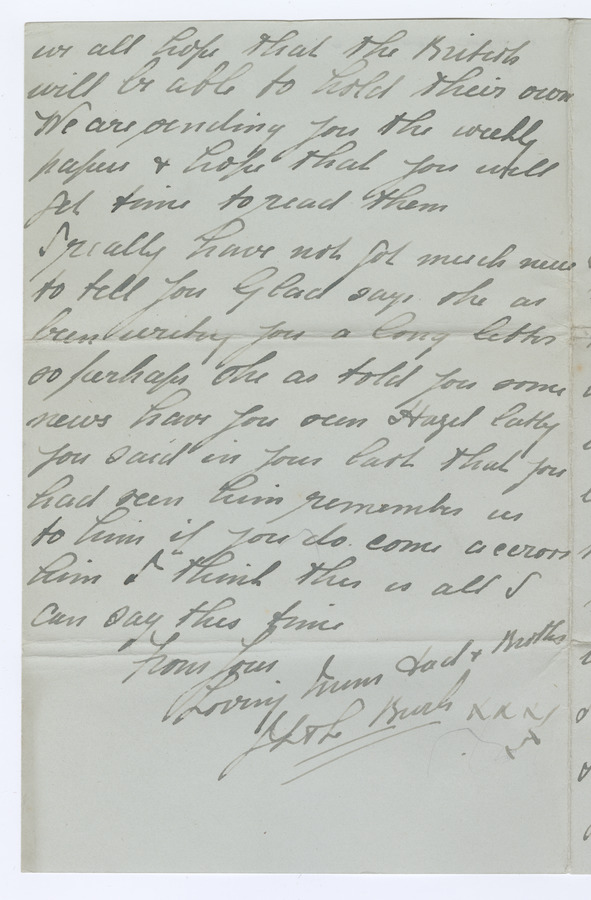 we all hope that the British
will be able to hold their own
We are sending you the weekly
papers & hope that you will
get time to read them
I really have not got much news
to tell you Glad says she as
been writing you a long letter
so perhaps she as told you some
news have you seen Hazel latly
you said in your last that you
had seen him remember us
to him if you do come accross
him I think this is all I
can say this time
From your
Loving Mum Dad & Brother
Burch x x x
x x